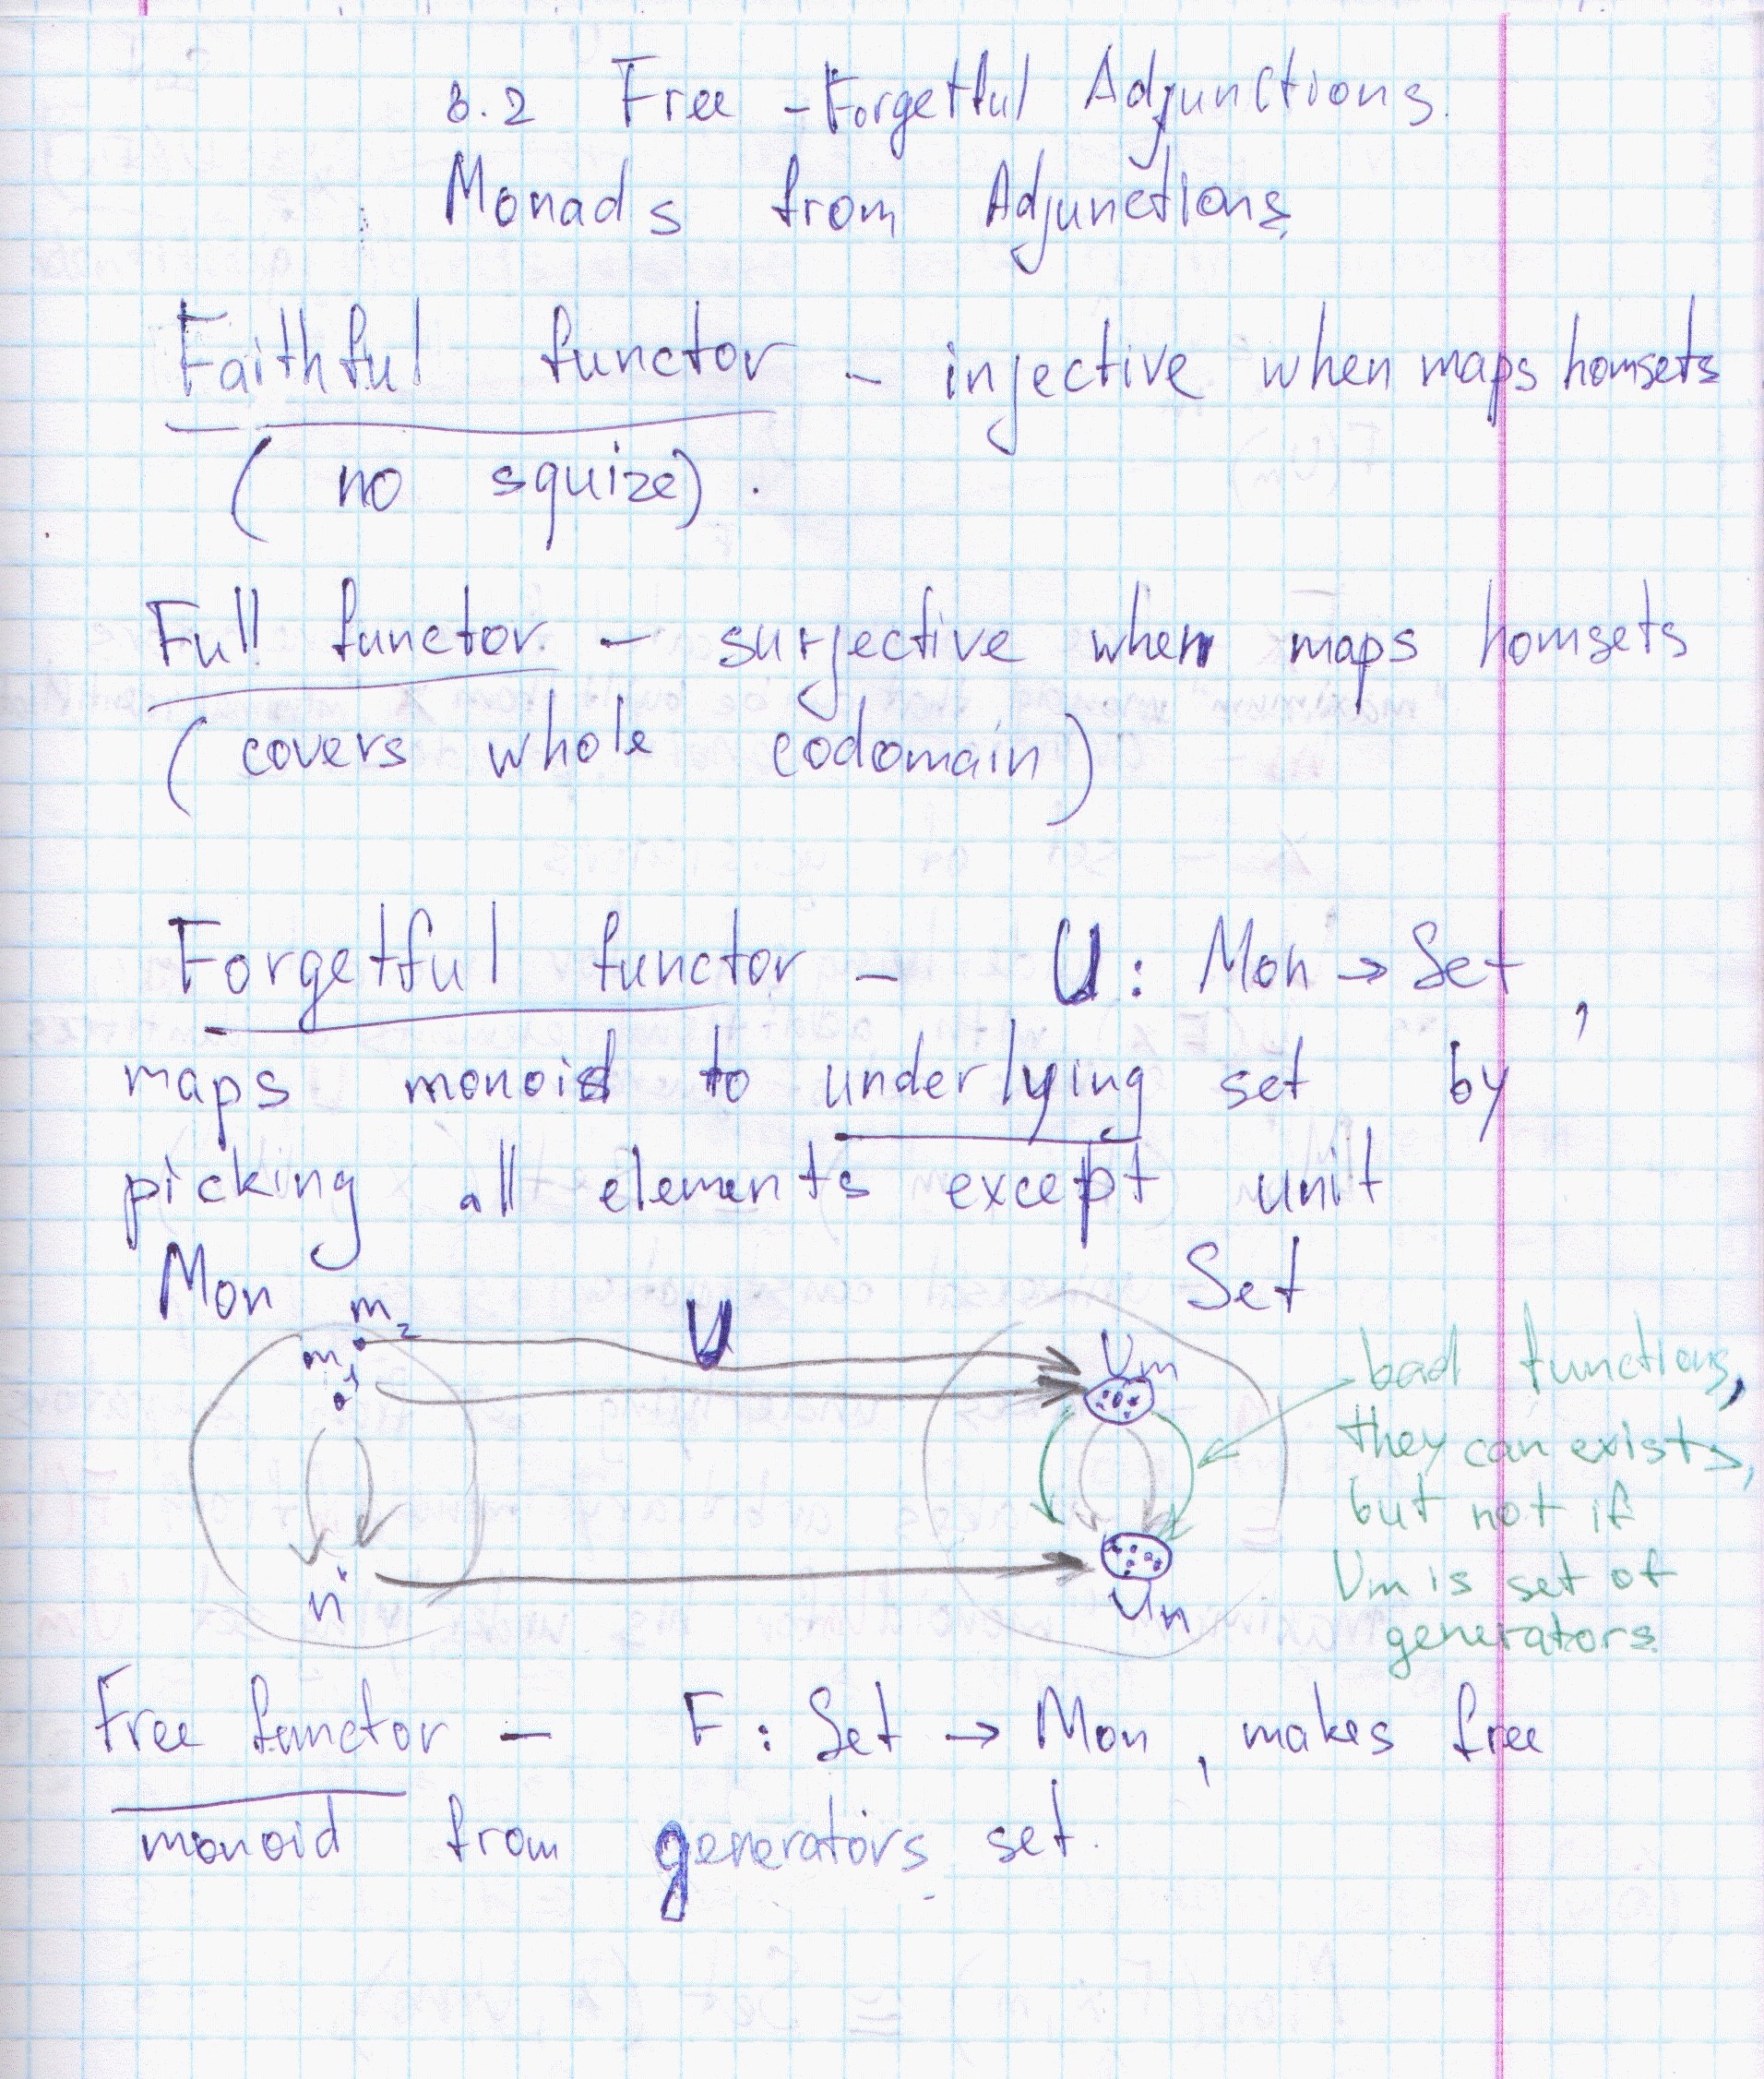 8.2 Free - Forgetful Adjunctions.
Monads from Adjunctions
Faithful functor - injective when maps homsets
( no squize) .
Full functor - surjective when maps homsets
( covers whole codomain )
Forgetful functor - U : Mon → Set ,
maps monoid to underlying set by
picking all elements except unit
Mon
Set
m2
U
m1
Um
n
Un
bad functions,
they can exists,
but not if
Um is set of
generators.
Free functor - F : Set → Mon , makes free
monoid from generators set.